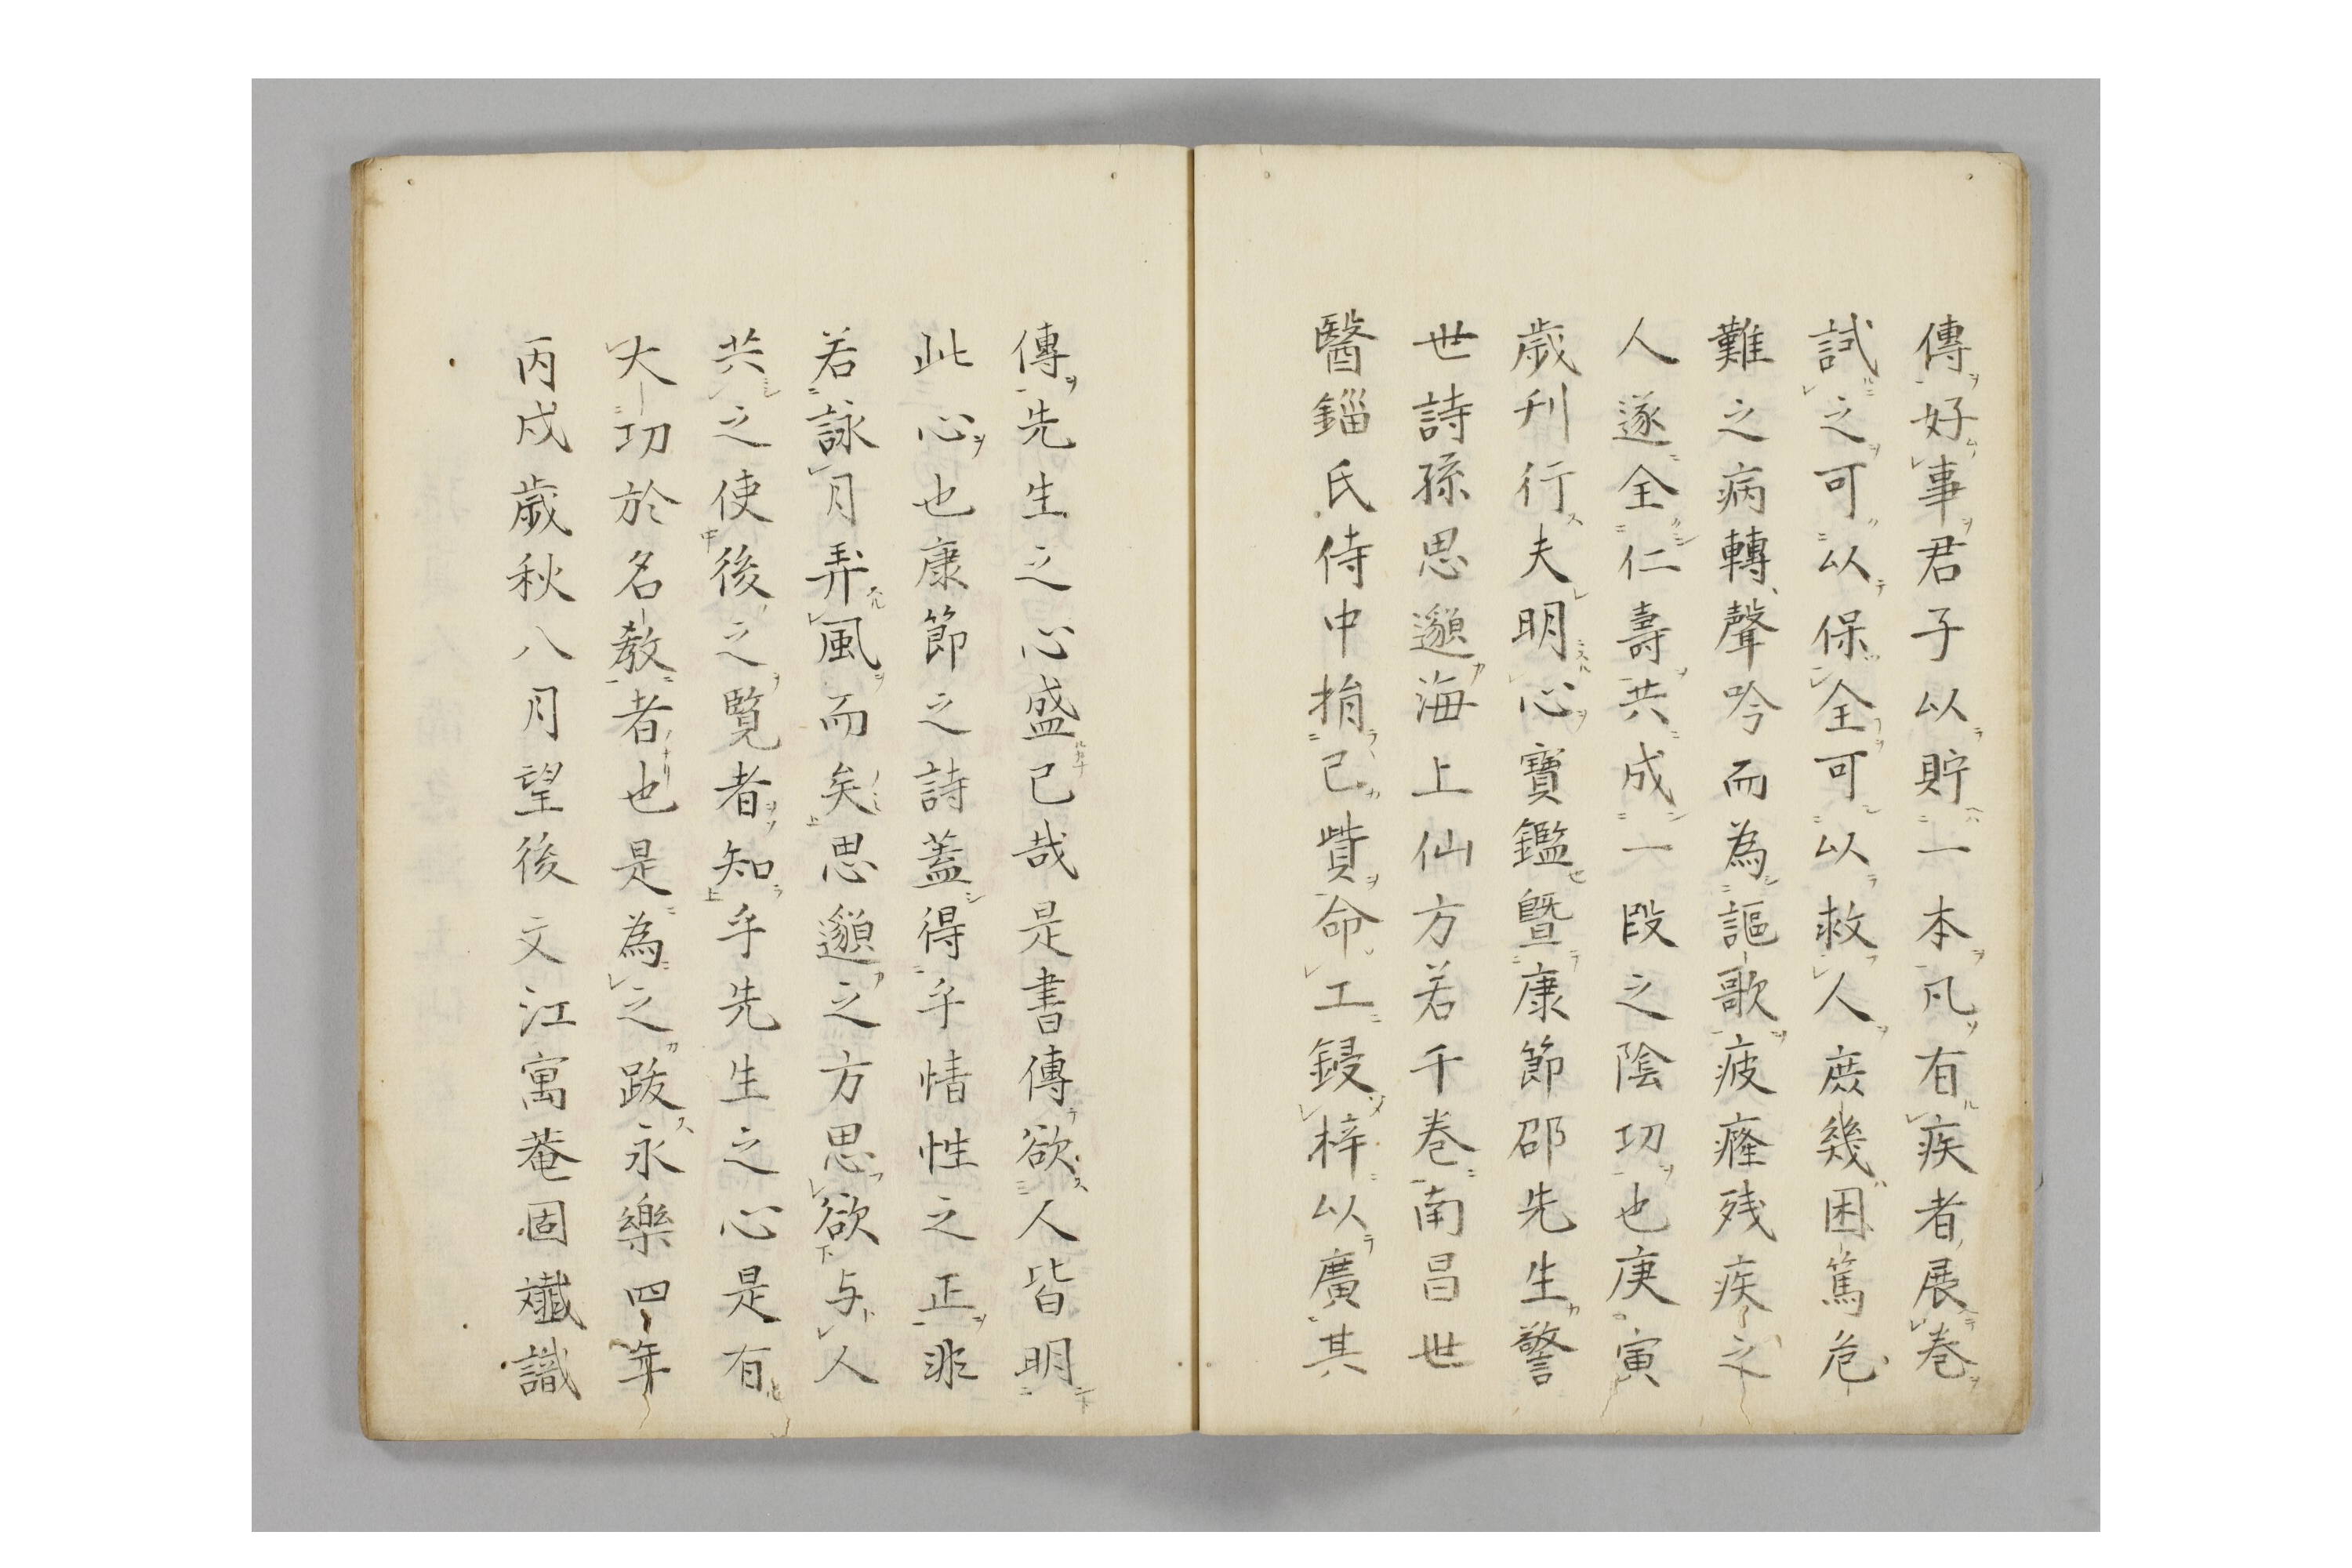 傳好事君子以貯一本凡有疾者展巻
試之可以保全可以救人庶幾困篤危
難之病轉聲吟而為謳歌疲癃残疾之
人遂全仁壽共成一段之陰功也庚寅
歳刊行夫明心寶鑑曁康節邵先生警
世詩孫思邈海上仙方若千巻南昌世
醫錙氏侍中捐己貲命工鋟梓以廣其
傳先生之心盛已哉是書傳欲人皆明
此心也康節之詩蓋得乎情性之正非
若詠月弄風而矣思邈之方思欲与人
共之使後之覧者知乎先生之心是有
大功於名教者也是為之跋永樂四年
丙戌歳秋八月望後文江寓菴固識